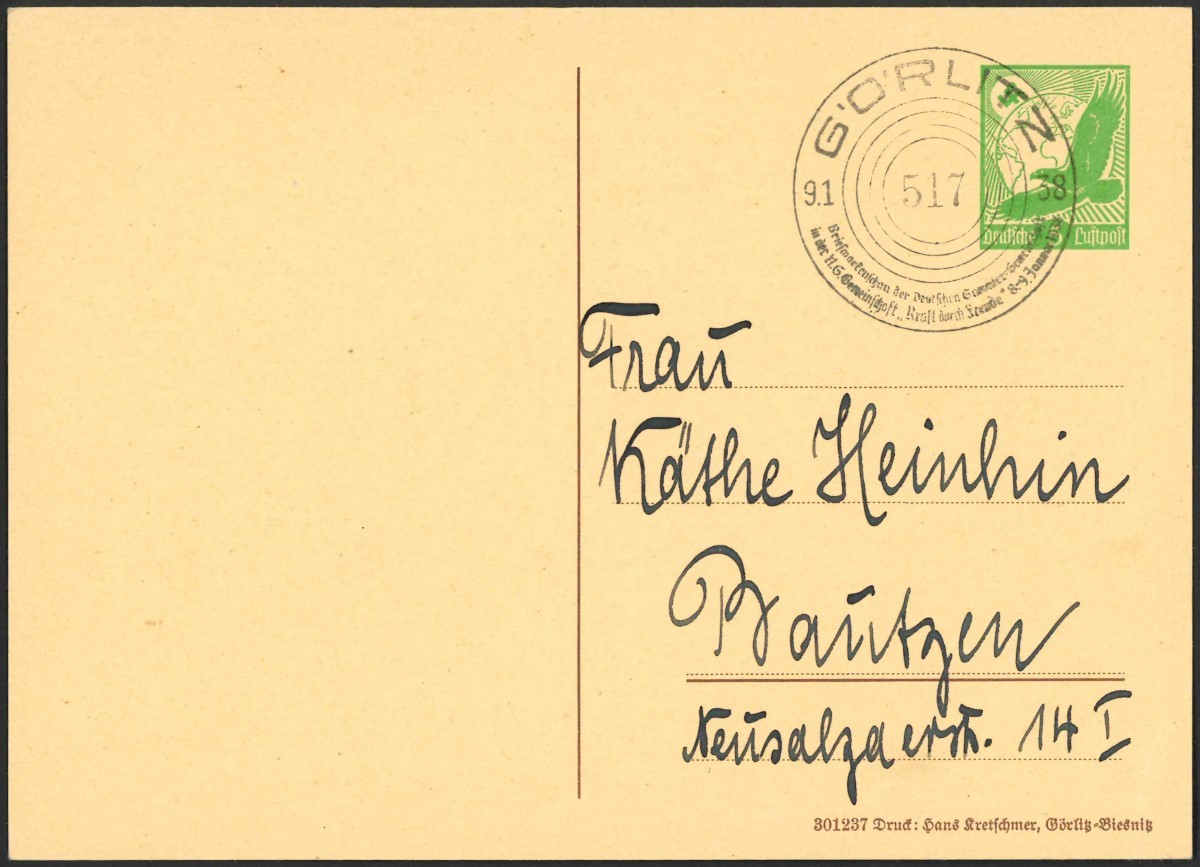 GÖRLITZ
9.1 517 38
Briefmarkenschau der Deutschen Sammler-Gemeinschaft
in der N.S. Gemeinschaft „Kraft durch Freude“ 8.-9. Januar 1938
Deutsche 5 Luftpost
Frau
Käthe Heinhin
Bautzen
Neusalzaerstr. 14 I
301237 Druck: Hans Kretschmer, Görlitz-Biesnitz